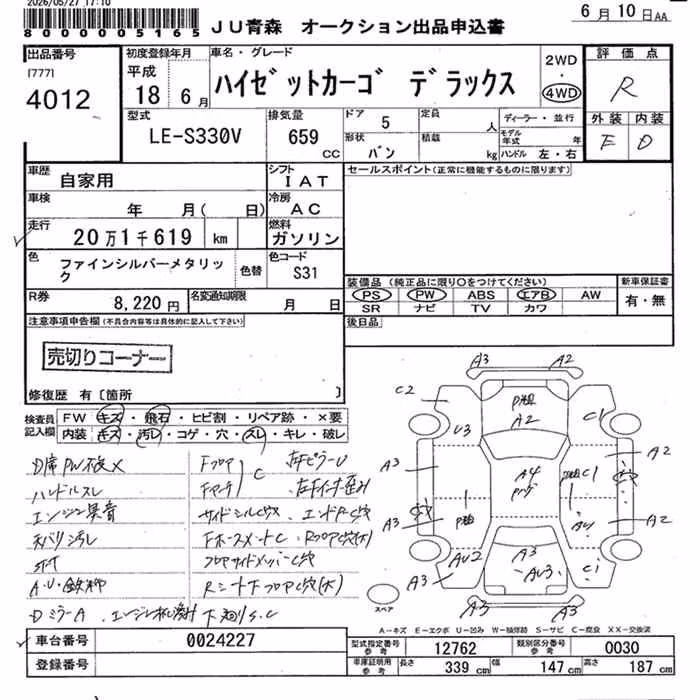 2026/05/27 17:10
8000005165
JU青森 オークション出品申込書
6月10日AA
出品番号
[777]
4012
初度登録年月
平成
18 6月
車名・グレード
ハイゼットカーゴ デラックス
2WD
・
4WD
評価点
R
外装 内装
E D
型式
LE-S330V
排気量
659
CC
ドア
5
形状
バン
定員
人
積載
kg
ディーラー・並行
モデル年式 年
ハンドル 左・右
車歴
自家用
シフト
IAT
セールスポイント(正常に機能するものに限ります)
車検
年 月( 日)
冷房
AC
走行
20万1千619 km
燃料
ガソリン
色
ファインシルバーメタリック
色替
色コード
S31
装備品(純正品に限り○をつけてください)
PS PW ABS エアB AW
SR ナビ TV カワ
新車保証書
有・無
R券
8,220円
名変通知期限
月 日
後日品
注意事項申告欄(不具合内容等は具体的に記入して下さい)
売切りコーナー
修復歴 有〔箇所 〕
検査員記入欄
FW キズ・飛石・ヒビ割・リペア跡・×要
内装 キズ・汚レ・コゲ・穴・スレ・キレ・破レ
D席PW不良X
ハンドルスレ
エンジン異音
天バリ汚レ
A・U・鉄粉
DミラーA
Fフロア
C
左Fピラー U
左Fインナー歪み
サイドシルC穴
エンドRC穴
FホースメントC
RフロアC穴(大)
フロアサイドメンバーC穴
Rシート下フロアC穴(大)
下廻りS.C
A3 A2
C2
P飛
A2
C1
U3
A2
A3
A4
C1
A3
P飛
AU
A2
AU2
A3
A3
AU3
C1
A3 A3
スペア
A-キズ E-エクボ U-凹み W-補修跡 S-サビ C-腐食 XX-交換済
車台番号
0024227
登録番号
型式指定番号
参考
12762
類別区分番号
参考
0030
車庫証明用
参考
長さ
339 cm
幅
147 cm
高さ
187 cm